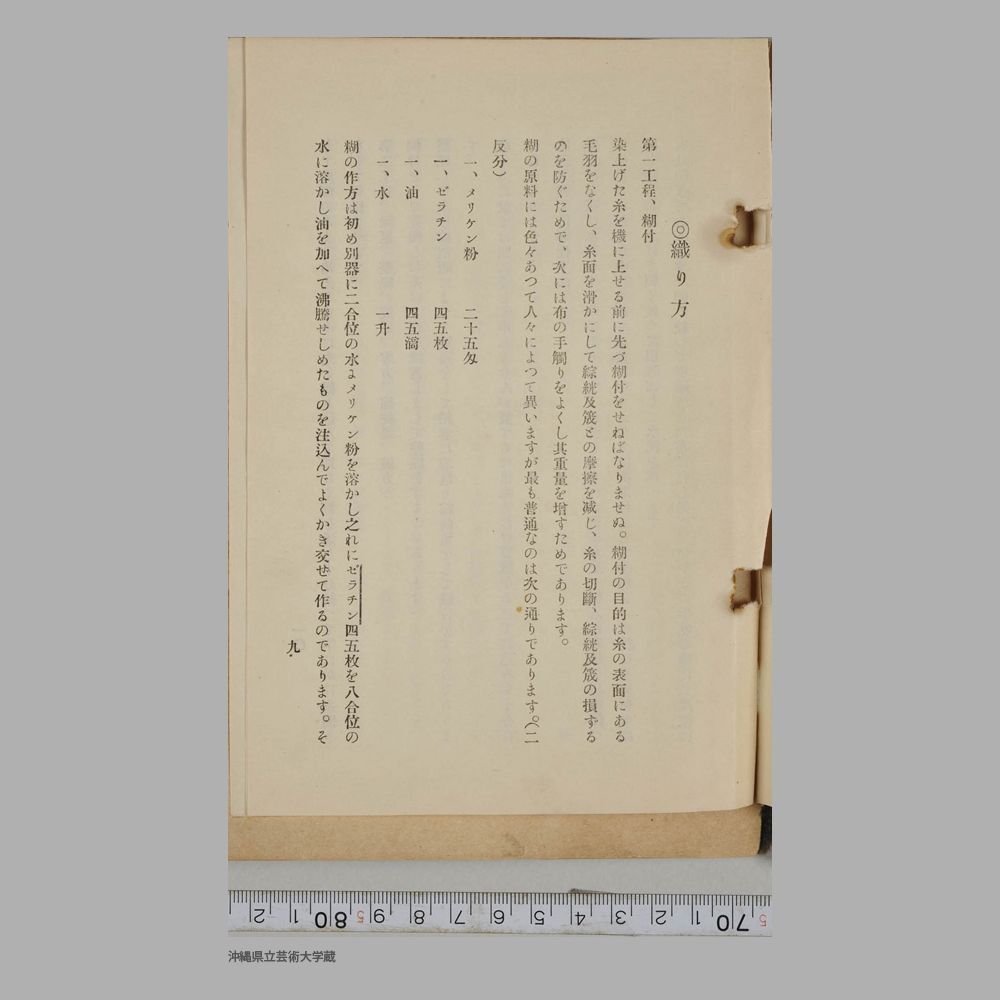 ◎織り方
第一工程、糊付
染上げた糸を機に上せる前に先づ糊付をせねばなりませぬ。糊付の目的は糸の表面にある
毛羽をなくし、糸面を滑かにして綜絖及筬との摩擦を減じ、糸の切斷、綜絖及筬の損ずる
のを防ぐためで、次には布の手觸りをよくし其重量を增すためであります。
糊の原料には色々あつて人々によつて異いますが最も普通なのは次の通りであります。(二
反分)
一、メリケン粉 二十五匁
一、ゼラチン 四五枚
一、油 四五滴
一、水 一升
糊の作方は初め別器に二合位の水よメリケン粉を溶かし之れにゼラチン四五枚を八合位の
水に溶かし油を加へて沸騰せしめたものを注込んでよくかき交せて作るのであります。そ
九
2 1 80 5 9 8 7 6 5 4 3 2 1 70 5
沖縄県立芸術大学蔵